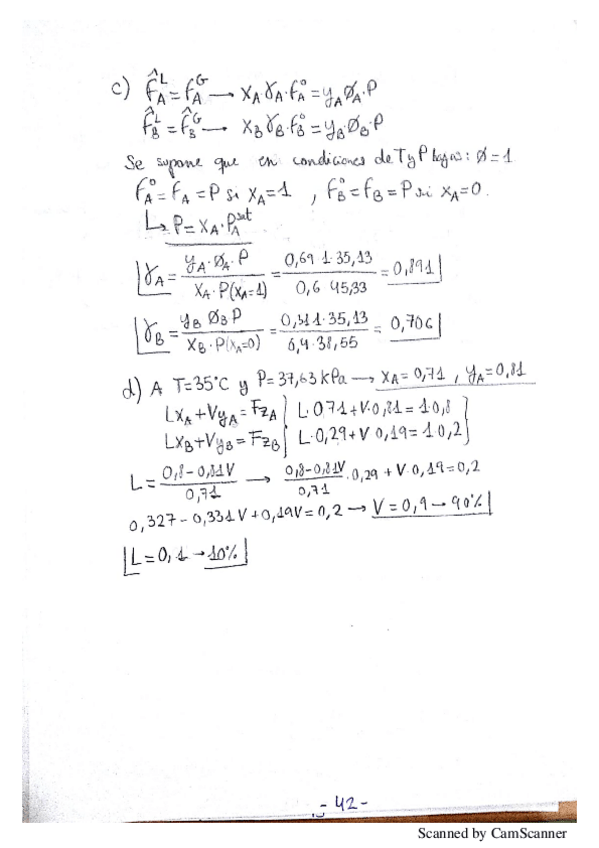 c) f̂_A^L = f_A^G → x_A γ_A · f_A° = y_A Ø_A · P
f̂_B^L = f̂_B^G → x_B γ_B · f_B° = y_B Ø_B · P
Se supone que en condiciones de T y P bajas: Ø = 1
f_A° = f_A = P si x_A = 1 , f_B° = f_B = P si x_A = 0.
↳ P = x_A · P_A^sat
γ_A = y_A · Ø_A · P / x_A · P(x_A=1) = 0,69 · 1 · 35,13 / 0,6 · 45,33 = 0,891
γ_B = y_B Ø_B P / x_B · P(x_A=0) = 0,31 · 1 · 35,13 / 0,4 · 38,55 = 0,706
d) A T=35°C y P=37,63 kPa → x_A = 0,71 , y_A = 0,81
Lx_A + Vy_A = Fz_A } L·0,71 + V·0,81 = 1·0,8
Lx_B + Vy_B = Fz_B } L·0,29 + V 0,19 = 1·0,2
L = 0,8 - 0,81V / 0,71 → 0,8 - 0,81V / 0,71 · 0,29 + V·0,19 = 0,2
0,327 - 0,331V + 0,19V = 0,2 → V = 0,9 → 90%
L = 0,1 → 10%
- 42 -
Scanned by CamScanner